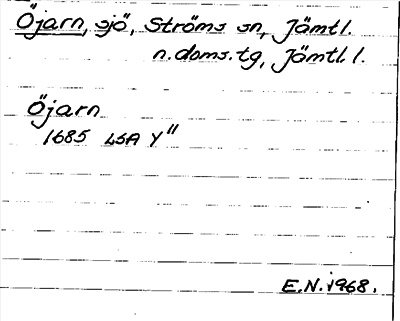 Öjarn, sjö, Ströms sn, Jämtl.
n.doms.tg, Jämtl. l.
Öjarn
1685 LSA Y"
E.N. 1968.